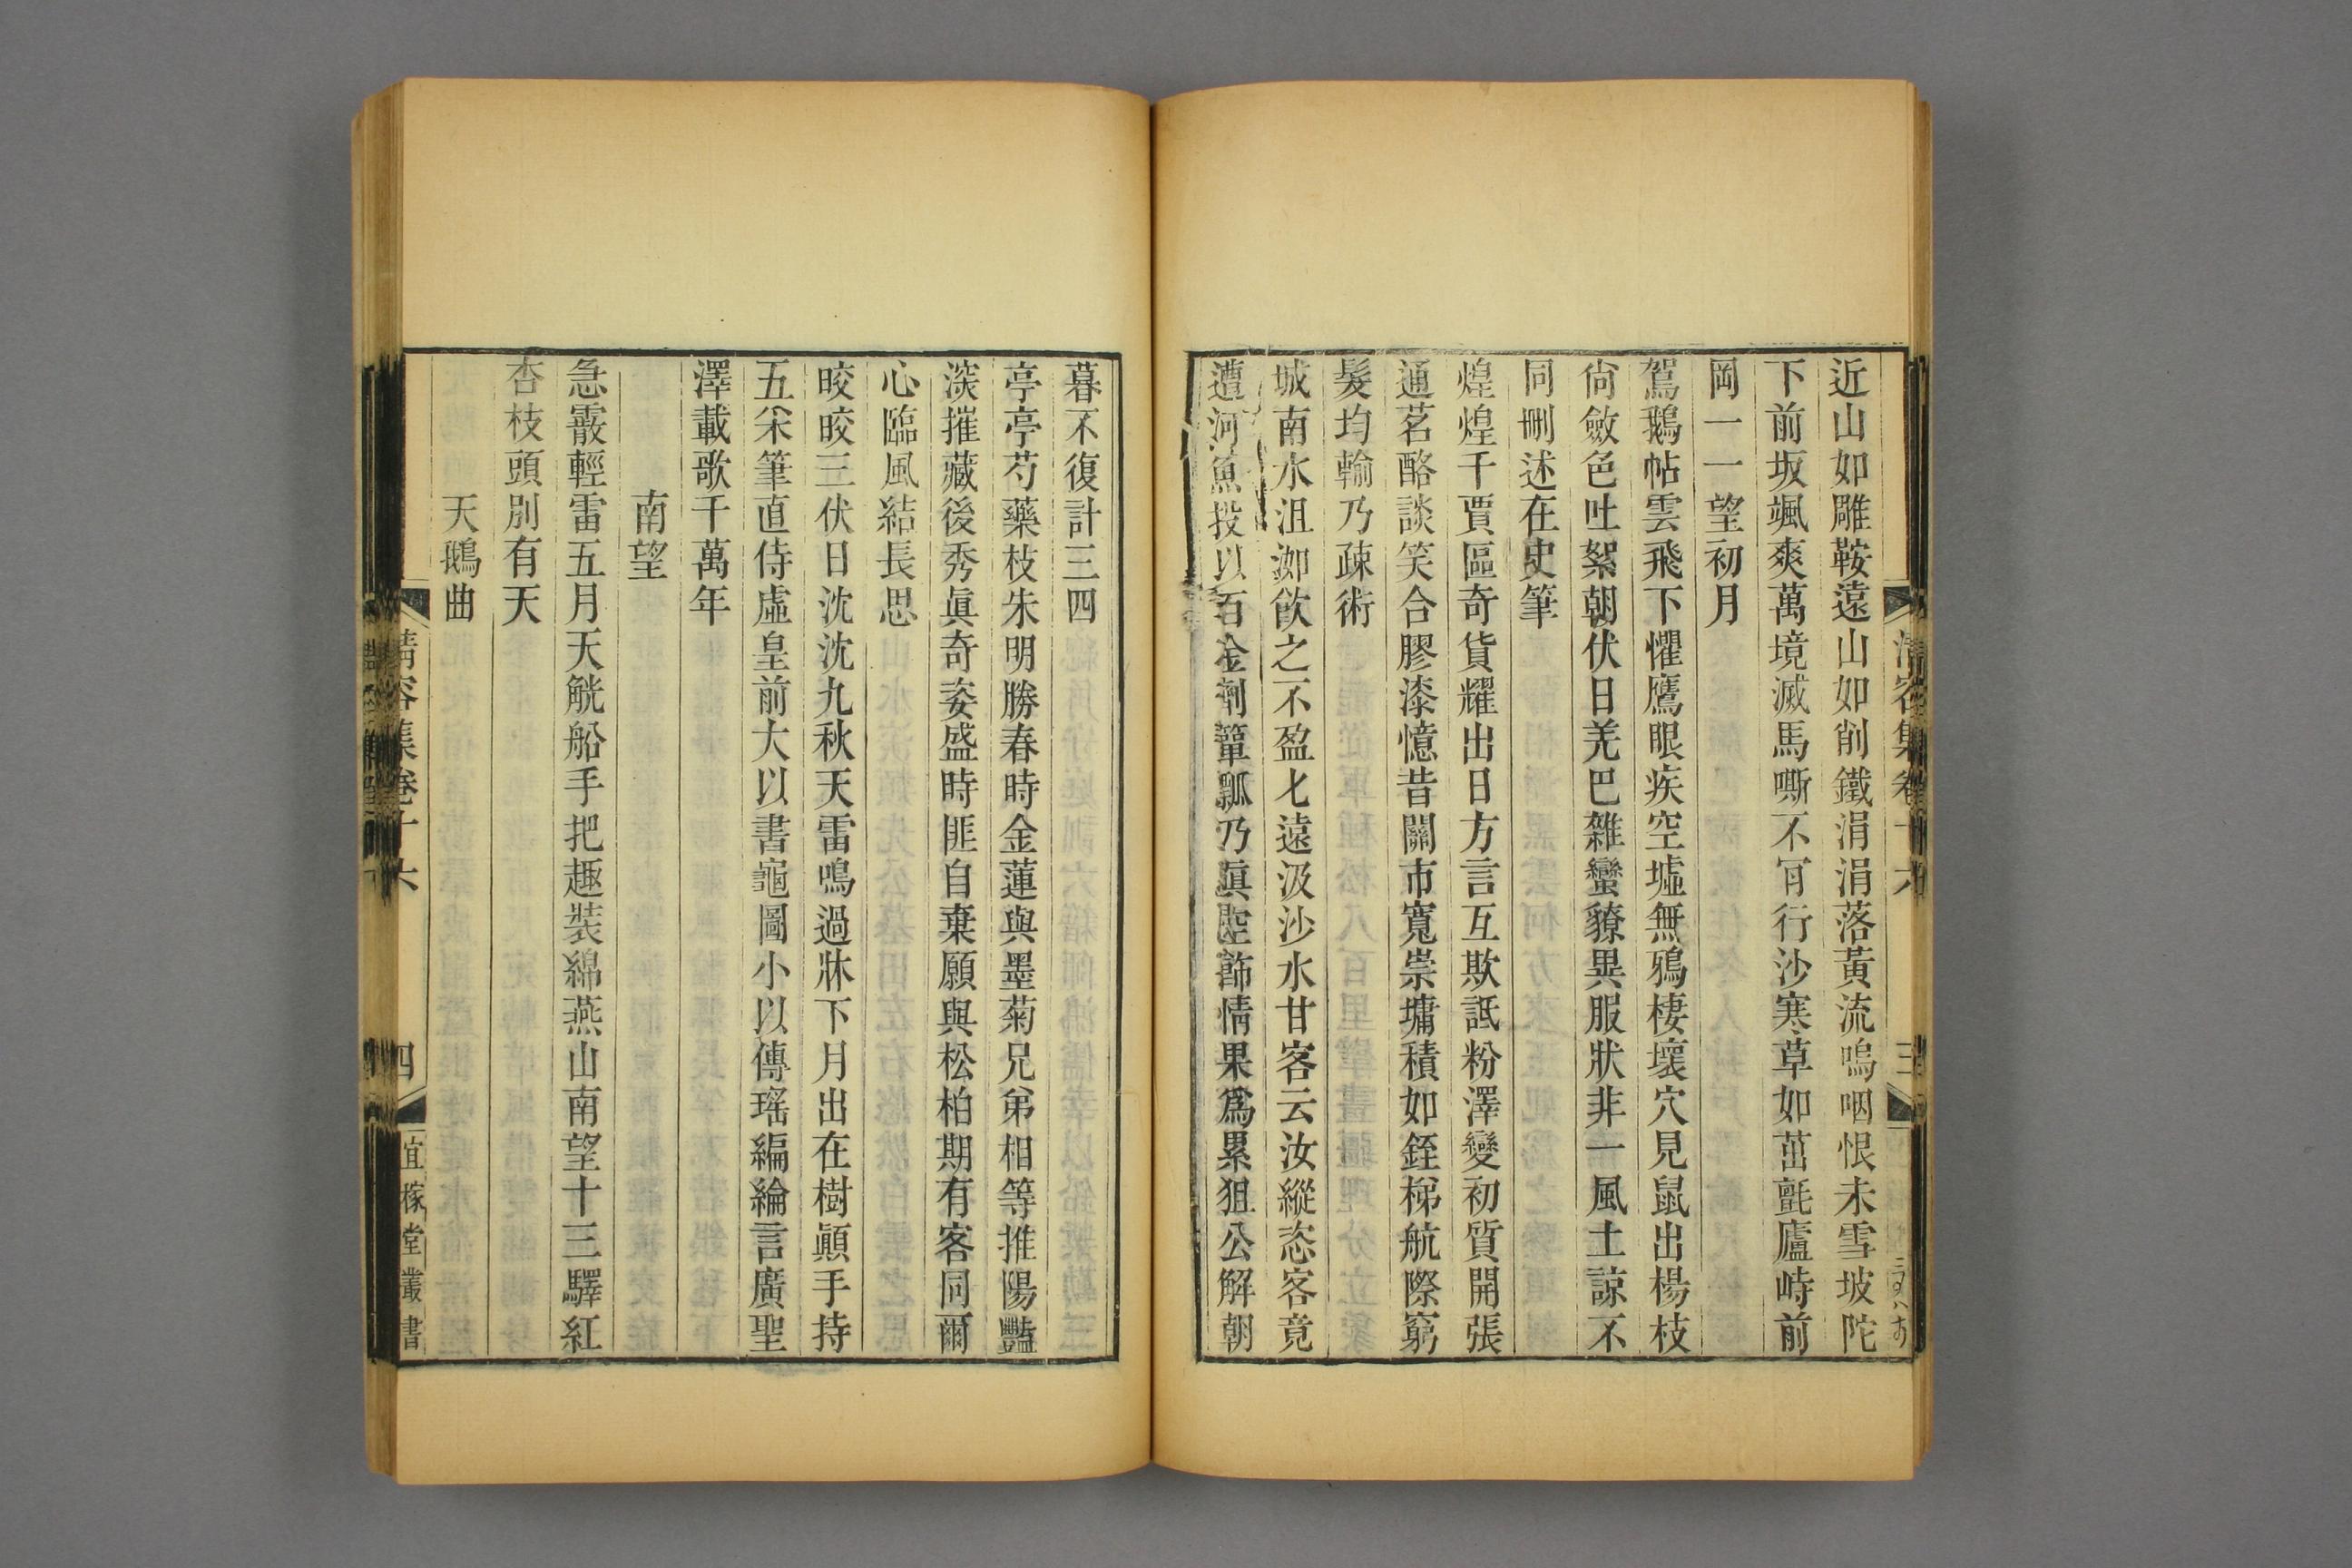 近山如雕鞍遠山如削鐵涓涓落黃流嗚咽恨未雪坡陀
下前坂颯爽萬境滅馬嘶不肎行沙寒草如茁氈廬峙前
岡一一望初月
駕鵝帖雲飛下懼鷹眼疾空墟無鴉棲壞穴見鼠出楊枝
尙斂色吐絮朝伏日羌巴雜蠻獠異服狀非一風土諒不
同刪述在史筆
煌煌千賈區奇貨耀出日方言互欺詆粉澤變初質開張
通茗酪談笑合膠漆憶昔關市寬崇墉積如銍梯航際窮
髮均輸乃疎術
城南水沮洳飮之不盈匕遠汲沙水甘客云汝縱恣客竟
遭河魚投以百金劑簞瓢乃眞啌節情果爲累狙公解朝
暮不復計三四
亭亭芍藥枝朱明勝春時金蓮與墨菊兄弟相等推陽豔
淡摧藏後秀眞奇姿盛時匪自棄願與松柏期有客同爾
心臨風結長思
晈晈三伏日沈沈九秋天雷鳴過牀下月出在樹顚手持
五釆筆直侍虛皇前大以書龜圖小以傳瑤編綸言廣聖
澤載歌千萬年
南望
急霰輕雷五月天觥船手把趣裝綿燕山南望十三驛紅
杏枝頭別有天
天鵝曲
清容集卷十六
四
宜稼堂叢書